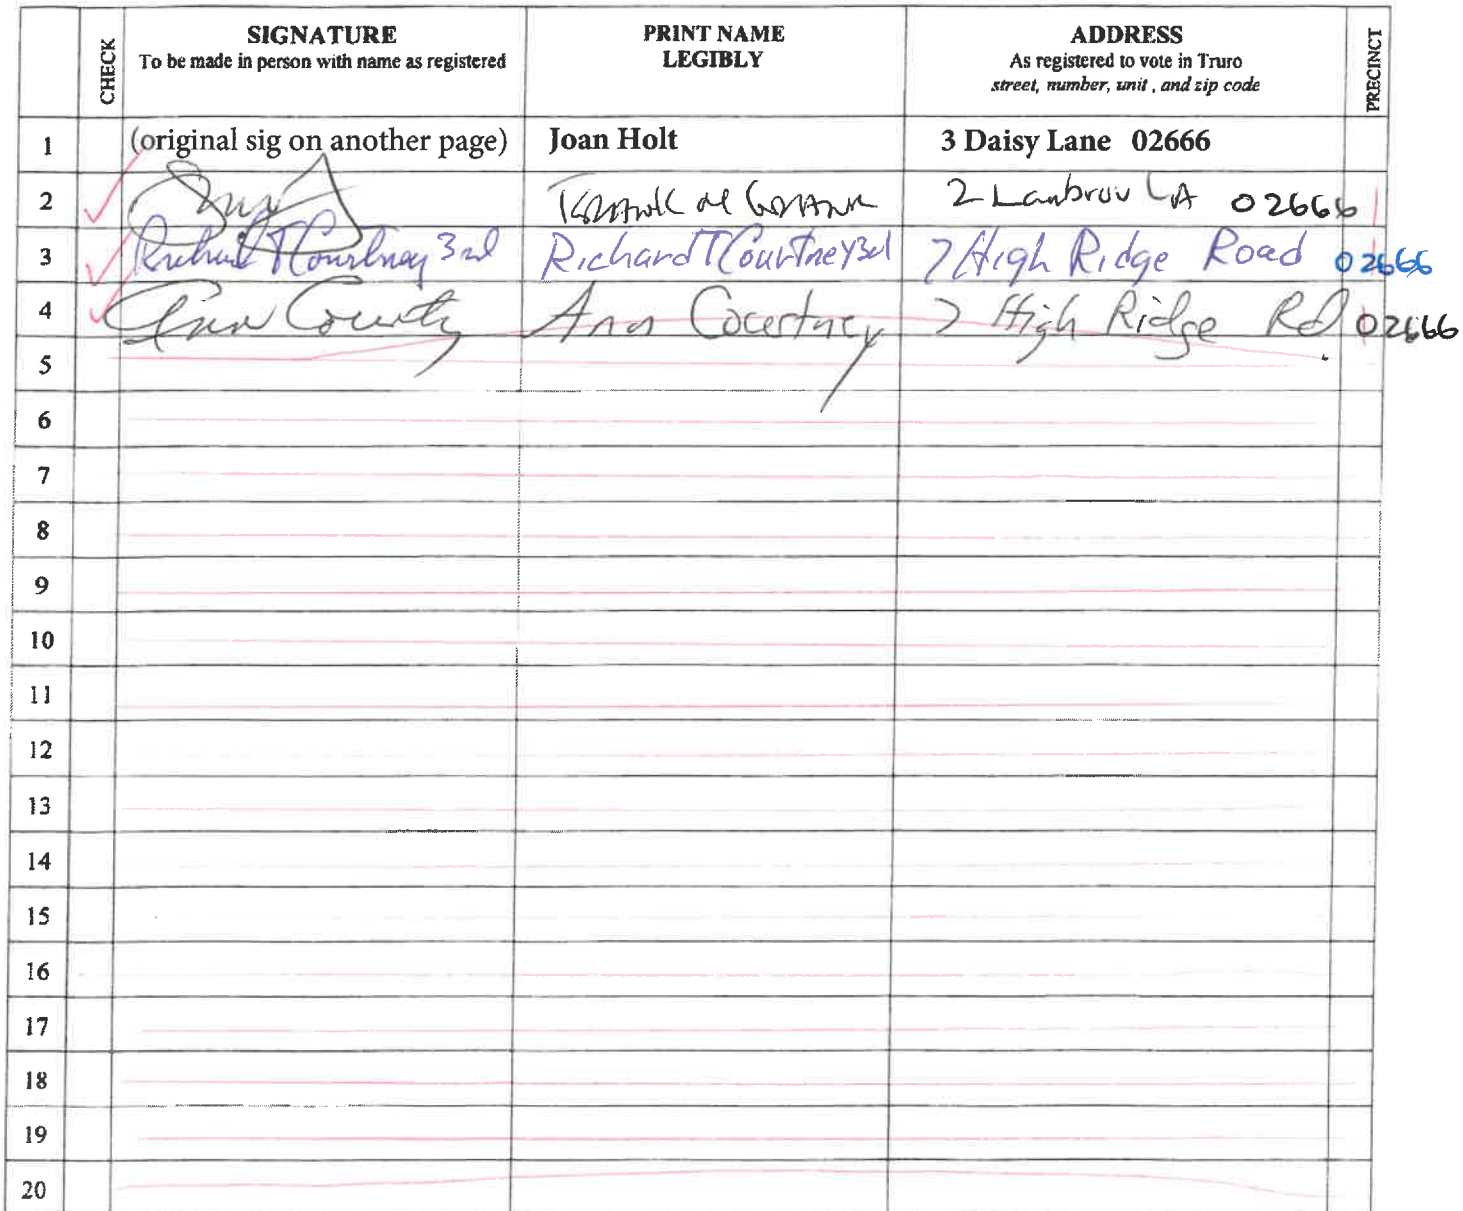 CHECK
SIGNATURE
To be made in person with name as registered
PRINT NAME
LEGIBLY
ADDRESS
As registered to vote in Truro
street, number, unit, and zip code
PRECINCT
1 (original sig on another page) Joan Holt 3 Daisy Lane 02666
2 2 02666
3 Richard T Courtney 3rd Richard T Courtney 3rd 7 High Ridge Road 02666
4 Ann Courtney Ann Courtney 7 High Ridge Rd 02666
5
6
7
8
9
10
11
12
13
14
15
16
17
18
19
20